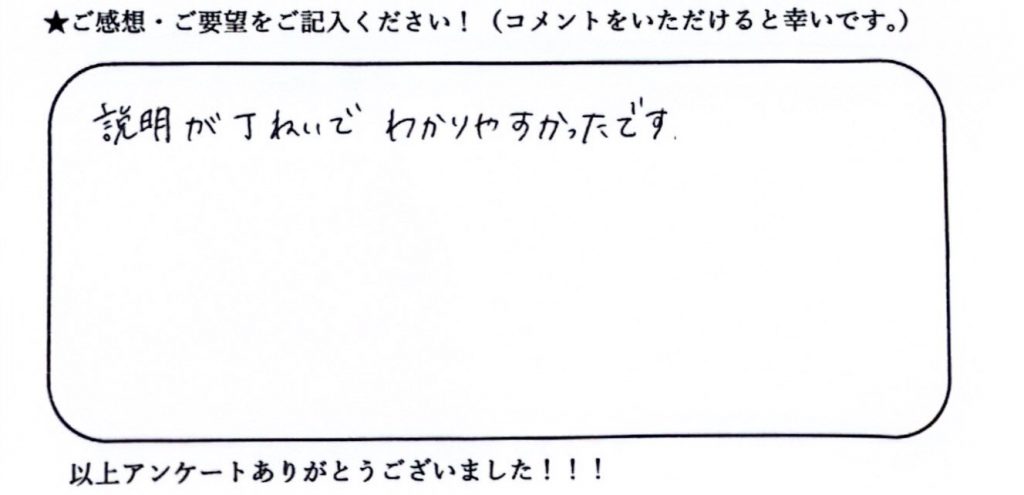 ★ご感想・ご要望をご記入ください！（コメントをいただけると幸いです。）
説明が丁ねいで わかりやすかったです.
以上アンケートありがとうございました！！！